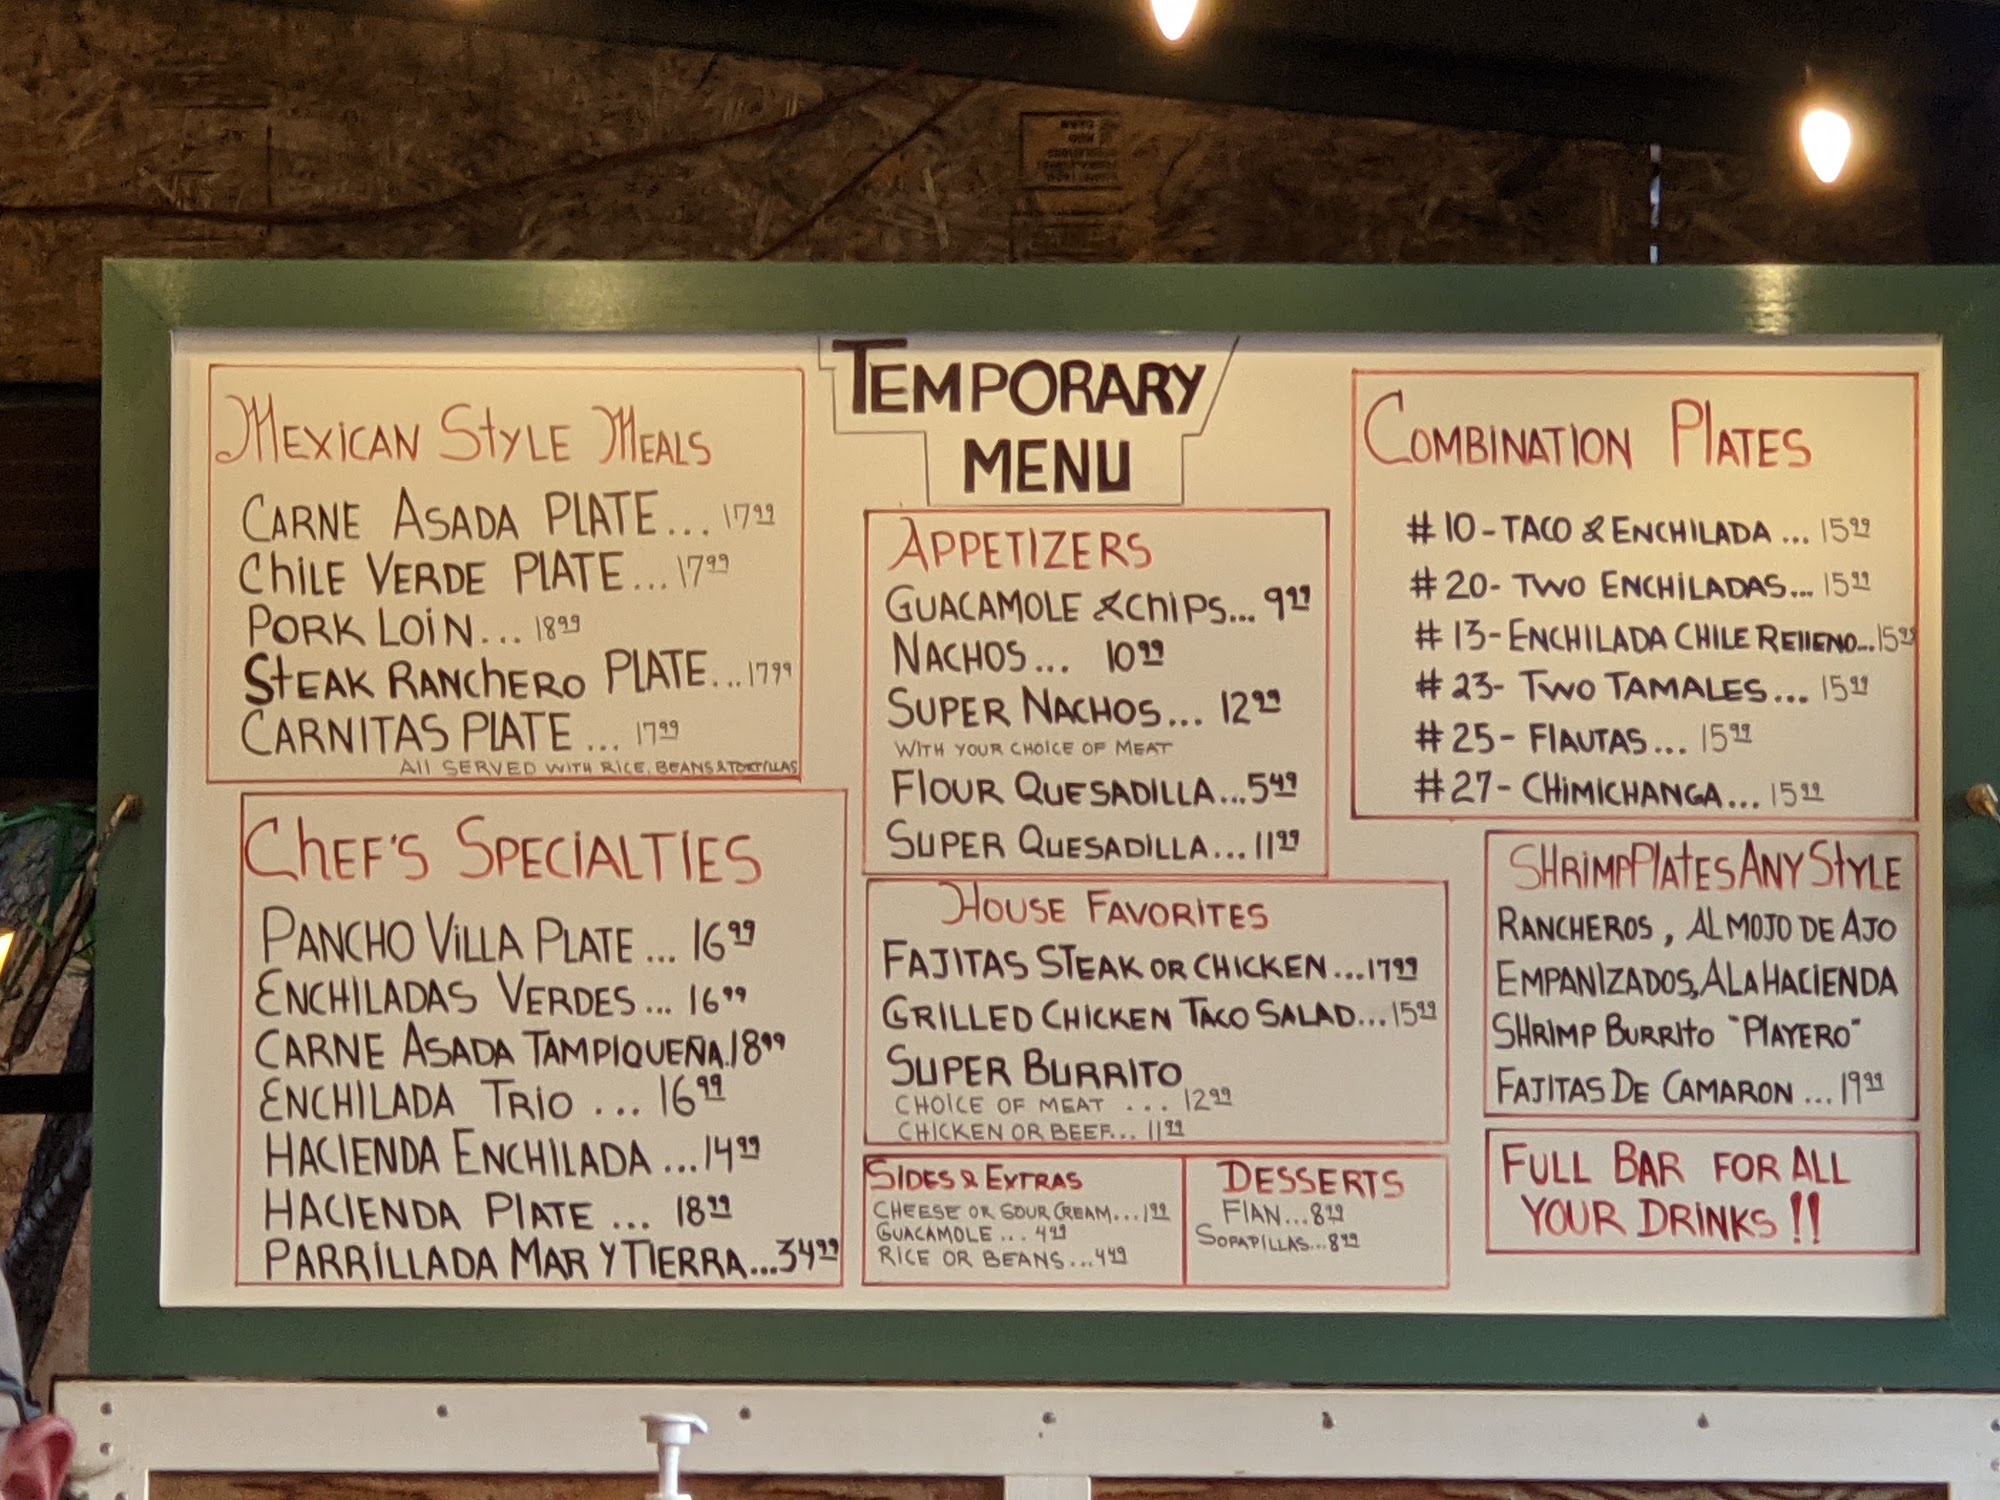 TEMPORARY
MENU
MEXICAN STYLE MEALS
CARNE ASADA PLATE... 17.99
CHILE VERDE PLATE... 17.99
PORK LOIN... 18.99
STEAK RANCHERO PLATE... 17.99
CARNITAS PLATE ... 17.99
All SERVED WITH RICE, BEANS & TORTILLAS
CHEF'S SPECIALTIES
PANCHO VILLA PLATE ... 16.99
ENCHILADAS VERDES... 16.99
CARNE ASADA TAMPIQUEÑA. 18.99
ENCHILADA TRIO ... 16.99
HACIENDA ENCHILADA ... 14.99
HACIENDA PLATE ... 18.99
PARRILLADA MAR Y TIERRA... 34.99
APPETIZERS
GUACAMOLE & CHIPS... 9.99
NACHOS... 10.99
SUPER NACHOS... 12.99
WITH YOUR CHOICE OF MEAT
FLOUR QUESADILLA... 5.49
SUPER QUESADILLA... 11.99
HOUSE FAVORITES
FAJITAS STEAK OR CHICKEN... 17.99
GRILLED CHICKEN TACO SALAD... 15.99
SUPER BURRITO
CHOICE OF MEAT ... 12.99
CHICKEN OR BEEF... 11.99
SIDES & EXTRAS
CHEESE OR SOUR CREAM... 1.99
GUACAMOLE ... 4.49
RICE OR BEANS ... 4.49
DESSERTS
FLAN... 8.99
SOPAPILLAS... 8.99
COMBINATION PLATES
#10 - TACO & ENCHILADA ... 15.99
#20 - TWO ENCHILADAS... 15.99
#13 - ENCHILADA CHILE RELLENO... 15.99
#23 - TWO TAMALES... 15.99
#25 - FLAUTAS... 15.99
#27 - CHIMICHANGA... 15.99
SHRIMP PLATES ANY STYLE
RANCHEROS, AL MOJO DE AJO
EMPANIZADOS, A LA HACIENDA
SHRIMP BURRITO "PLAYERO"
FAJITAS DE CAMARON ... 19.99
FULL BAR FOR ALL
YOUR DRINKS !!